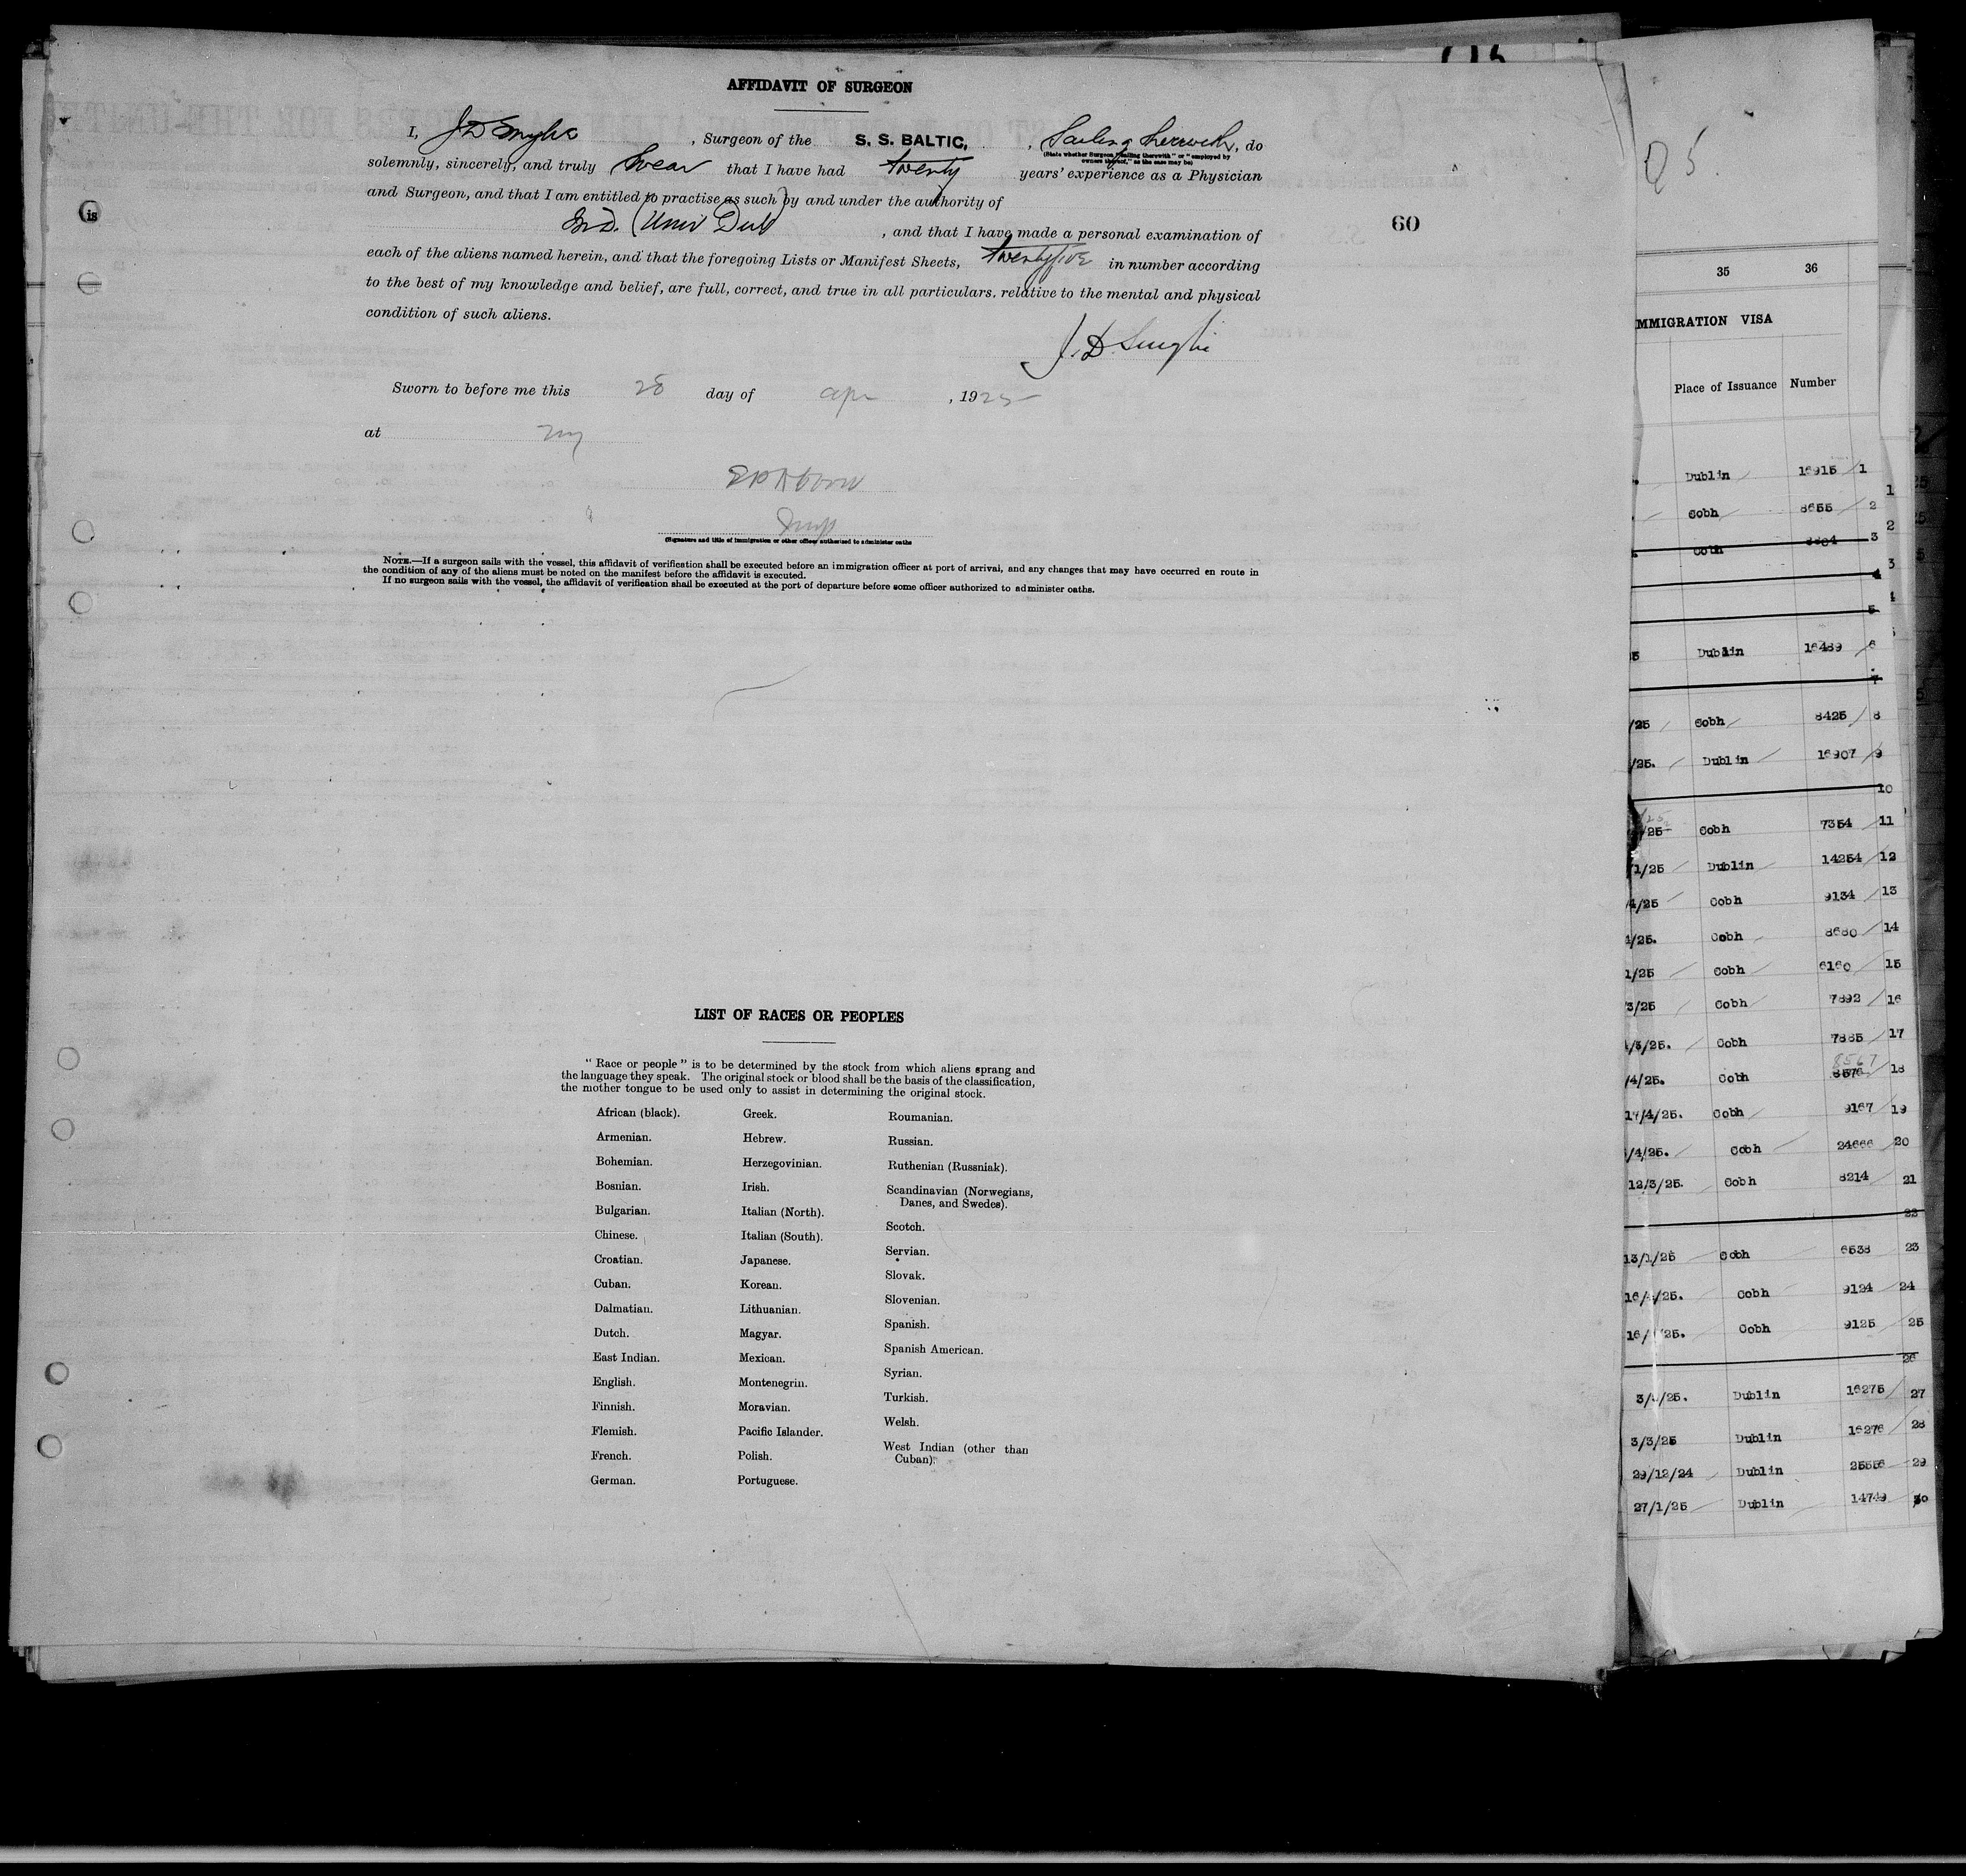 AFFIDAVIT OF SURGEON
I, , Surgeon of the S. S. BALTIC, , Sailing therewith, do
(State whether Surgeon "sailing therewith" or "employed by
owners thereof," as the case may be)
solemnly, sincerely, and truly Swear that I have had twenty years' experience as a Physician
and Surgeon, and that I am entitled to practise as such by and under the authority of
M.D. (Univ Dub) , and that I have made a personal examination of
is
60
each of the aliens named herein, and that the foregoing Lists or Manifest Sheets, twentyfive in number according
to the best of my knowledge and belief, are full, correct, and true in all particulars, relative to the mental and physical
condition of such aliens.
Sworn to before me this 28 day of apr , 1925
at ny
Insp
(Signature and title of immigration or other officer authorized to administer oaths
NOTE.—If a surgeon sails with the vessel, this affidavit of verification shall be executed before an immigration officer at port of arrival, and any changes that may have occurred en route in
the condition of any of the aliens must be noted on the manifest before the affidavit is executed.
If no surgeon sails with the vessel, the affidavit of verification shall be executed at the port of departure before some officer authorized to administer oaths.
LIST OF RACES OR PEOPLES
"Race or people" is to be determined by the stock from which aliens sprang and
the language they speak. The original stock or blood shall be the basis of the classification,
the mother tongue to be used only to assist in determining the original stock.
African (black).
Armenian.
Bohemian.
Bosnian.
Bulgarian.
Chinese.
Croatian.
Cuban.
Dalmatian.
Dutch.
East Indian.
English.
Finnish.
Flemish.
French.
German.
Greek.
Hebrew.
Herzegovinian.
Irish.
Italian (North).
Italian (South).
Japanese.
Korean.
Lithuanian.
Magyar.
Mexican.
Montenegrin.
Moravian.
Pacific Islander.
Polish.
Portuguese.
Roumanian.
Russian.
Ruthenian (Russniak).
Scandinavian (Norwegians,
Danes, and Swedes).
Scotch.
Servian.
Slovak.
Slovenian.
Spanish.
Spanish American.
Syrian.
Turkish.
Welsh.
West Indian (other than
Cuban).
35 36
MMIGRATION VISA
Place of Issuance Number
Dublin 16915 1
Cobh 8655 2
Cobh 3
4
5
5 Dublin 16489 6
7
/25 Cobh 8425 8
/25. Dublin 16907 9
10
/25 Cobh 7354 11
1/25 Dublin 14254 12
4/25 Cobh 9134 13
4/25. Cobh 8680 14
1/25 Cobh 6160 15
3/25 Cobh 7892 16
/3/25. Cobh 7885 17
8567
/4/25. Cobh 8576 18
17/4/25. Cobh 9167 19
/4/25. Cobh 24666 20
12/3/25. Cobh 8214 21
22
13/1/25 Cobh 6538 23
16/4/25. Cobh 9124 24
16/ /25. Cobh 9125 25
26
3/3/25. Dublin 16275 27
3/3/25 Dublin 16276 28
29/12/24 Dublin 25556 29
27/1/25 Dublin 14749 30